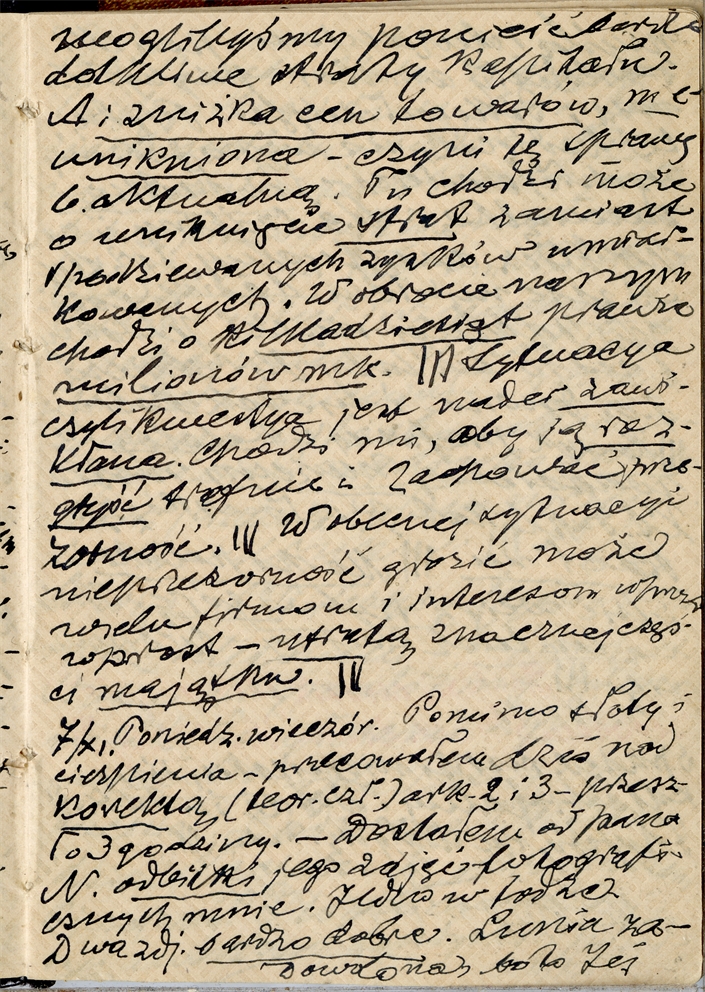 moglibyśmy ponieść bardzo
dotkliwe straty kapitału.
A i zniżka cen towarów, nie-
unikniona – czyni tę sprawę
b. aktualną. Tu chodzi może
o uniknięcie strat zamiast
spodziewanych zysków umiar-
kowanych). W obrocie naszym
chodzi o kilkadziesiąt prawie
milionów mk. III Sytuacya
czyli kwestya jest nader zawi-
kłana. Chodzi mi, aby ją roz-
gryźć trafnie i zachować prze-
zorność. IV W obecnej sytuacyi
nieprzezorność grozić może
wielu firmom i interesom wprost
wprost – utratą znacznej częś-
ci majątku. IV
7/XI. Poniedz. wieczór. Pomimo słoty i
cierpienia – pracowałem dziś nad
korektą (teor. czł.) ark. 2 i 3 – przesz-
ło 3 godziny. – Dostałem od pana
N. odbitki jego zdjęć fotografi-
cznych mnie. Jedno w todze
Dwa zdj. bardzo dobre. Lunia za-